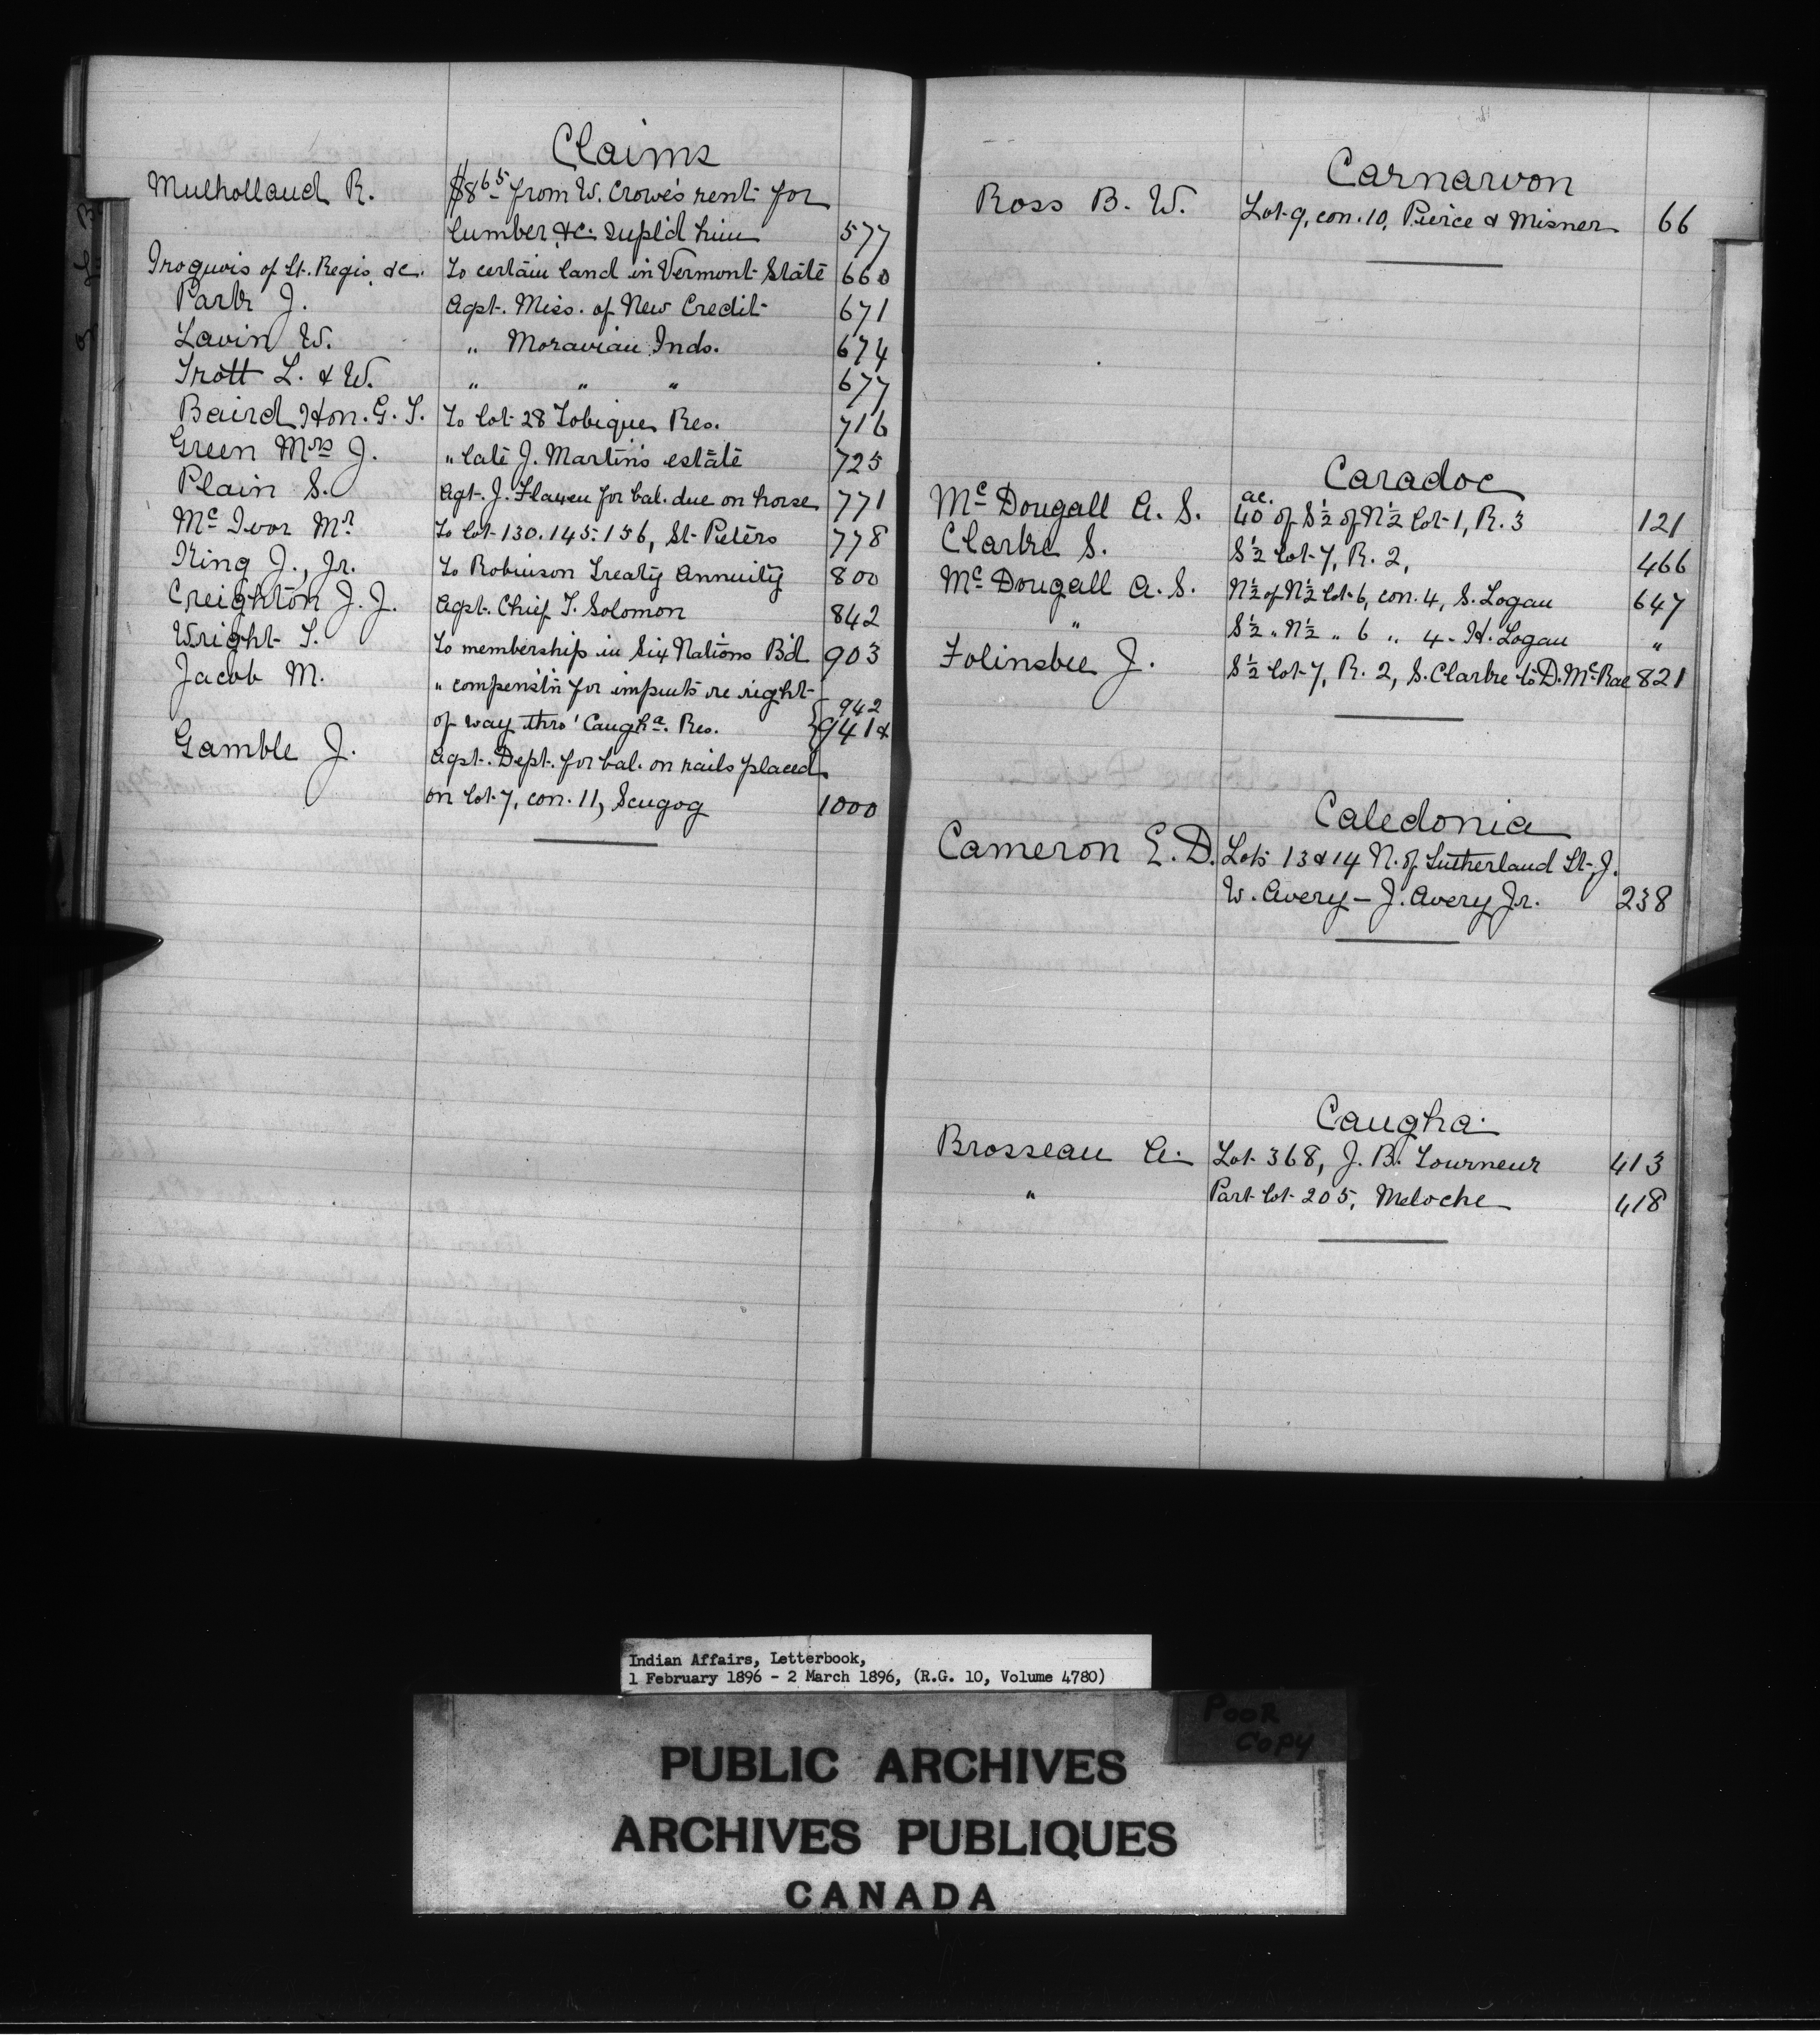 Claims
Mulholland R. $8.65 from W. Crowe's rent for
lumber, &c. supl'd him 577
Iroquois of St. Regis, &c. To certain land in Vermont State 660
Park J. Agst. Miss. of New Credit 671
Lavin W. " Moravian Inds. 674
Trott L. & W. " " " 677
Baird Hon. G. T. To lot 28 Tobique Res. 716
Green Mrs J. " late J. Martin's estate 725
Plain S. Agt. J. Flaxen for bal. due on horse 771
Mc Ivor Mr To lot 130.145.156, St. Peters 778
King J., Jr. To Robinson Treaty Annuity 800
Creighton J. J. Agst. Chief T. Solomon 842
Wright T. To membership in Six Nations B'd 903
Jacob M. " compens'tn for imputs re right
of way thro' Caugha. Res. { 941 & 942
Gamble J. Agst. Dept. for bal. on rails placed
on lot 7, con. 11, Scugog 1000
Carnarvon
Ross B. W. Lot 9, con. 10, Pierce & Misner 66
Caradoc
McDougall A. S. 40 ac. of S½ of N½ lot 1, R. 3 121
Clarke S. S½ lot 7, R. 2, 466
McDougall A. S. N½ of N½ lot 6, con. 4, S. Logan 647
" S½ " N½ " 6 " 4 - H. Logan "
Folinsbee J. S½ lot 7, R. 2, S. Clarke to D. McRae 821
Caledonia
Cameron E. D. Lots 13 & 14 N. of Sutherland St., J.
W. Avery – J. Avery Jr. 238
Caugha.
Brosseau A. Lot 368, J. B. Tourneur 413
" Part lot 205, Meloche 418
Indian Affairs, Letterbook,
1 February 1896 - 2 March 1896, (R.G. 10, Volume 4780)
POOR
COPY
PUBLIC ARCHIVES
ARCHIVES PUBLIQUES
CANADA